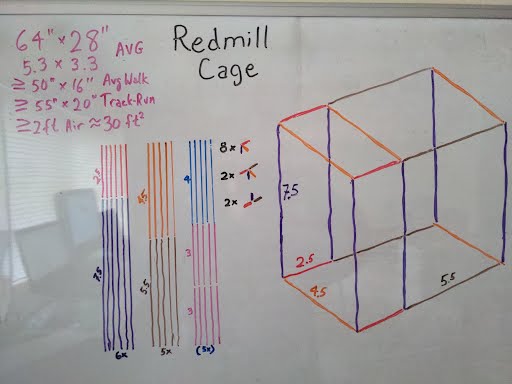 64" × 28" AVG
5.3 × 3.3
≥ 50" × 16" Avg Walk
≥ 55" × 20" Track-Run
≥ 2ft Air ≈ 30 ft²
Redmill
Cage
8x
2x
2x
2.5
7.5
6x
4.5
5.5
5x
4
3
3
(3x)
7.5
2.5
4.5
5.5